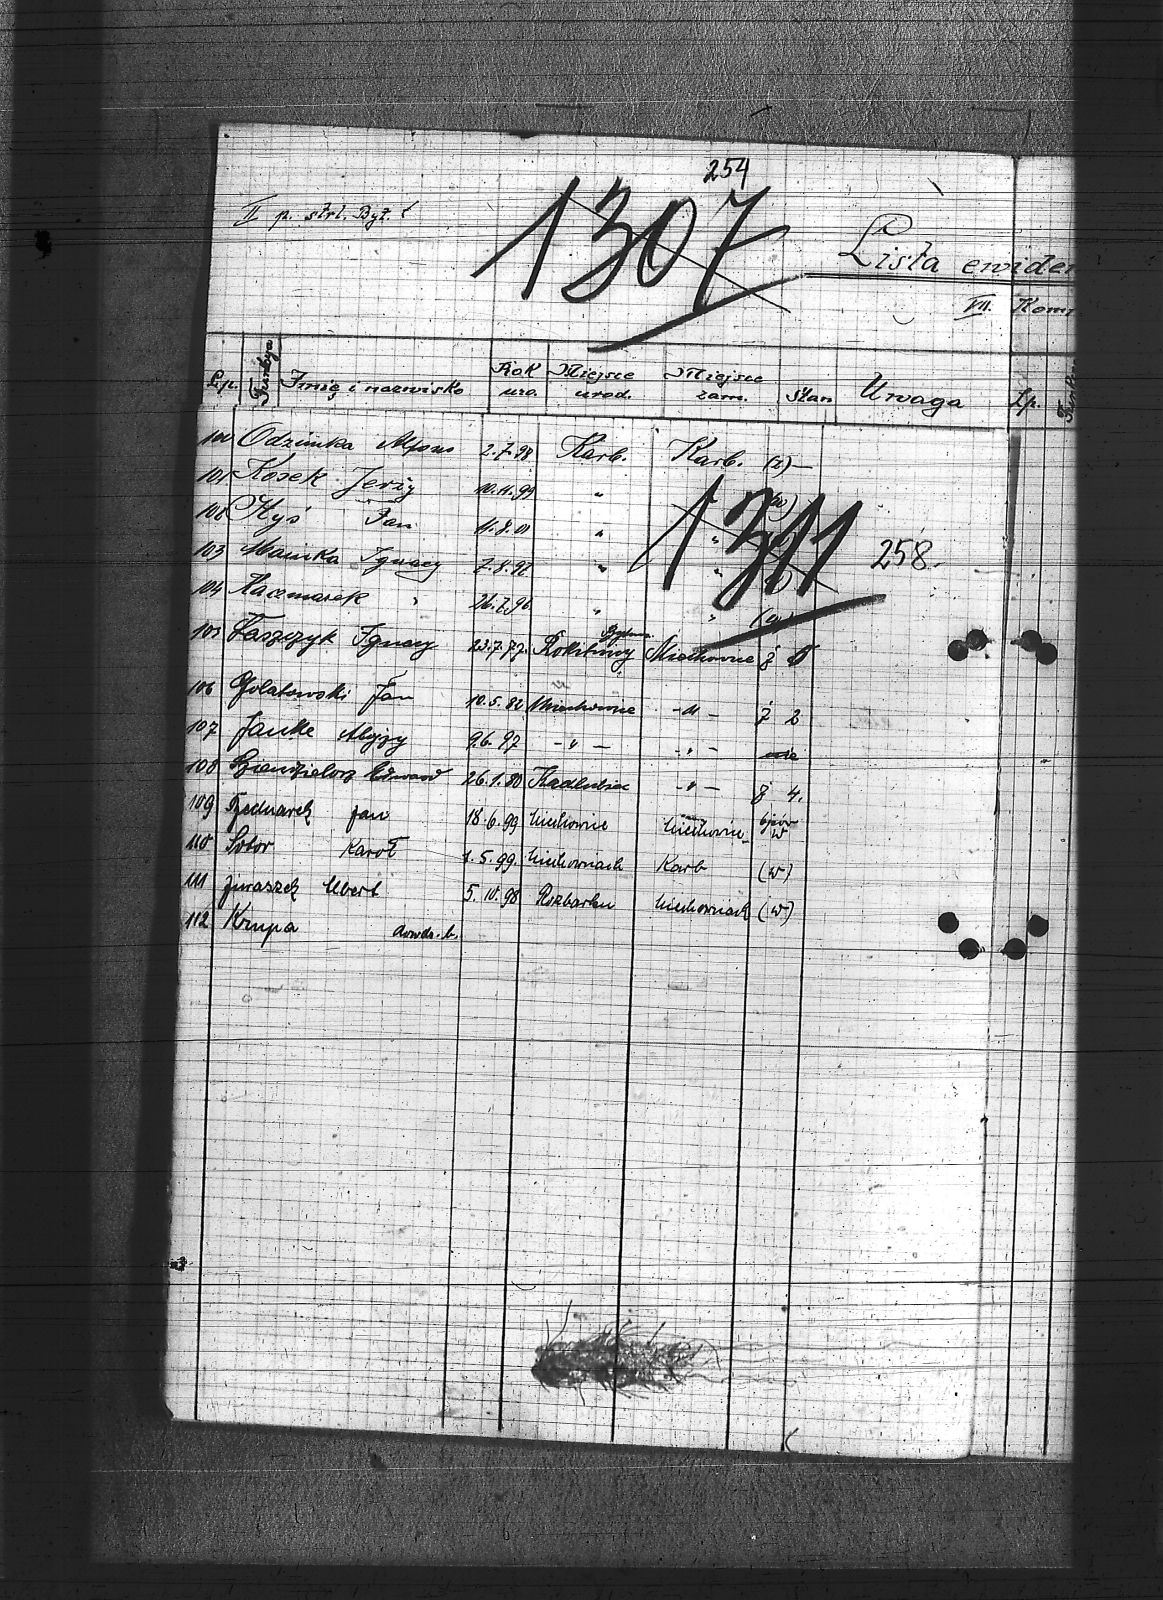 254
1307
II p. strl. Byt.
Lista ewiden
VII. Kom
Lp. Funkcja Imię i nazwisko Rok uro. Miejsce urod. Miejsce zam. Stan Uwaga Lp.
100 Odzimka Alfons 2.7.98 Karb. Karb.
101 Kosek Jerzy 10.11.99 "
Kyś Jan 11.8.01 " "
1311
258.
103 Mainka Ignacy 7.8.92 " "
104 Kaczmarek " 26.7.96 " "
Bytom
105 Taszczyk Ignacy 23.7.77. Rokitnicy Miechowice ż 5
106 Golatowski Jan 10.5.82 Miechowice -"- ż 2
107 Janke Alojzy 9.6.97 -"- -"-
108 Szendzielorz Edward 26.1.80 Kadlubiec -"- ż 4.
109 Bednarek Jan 18.6.99 Miechowice Miechowice
110 Sobor Karol 1.5.99. Miechowicach Karb (w)
111 Jiraszek Albert 5.IV.98 Rozbarku Miechowicach (w)
112 Krupa